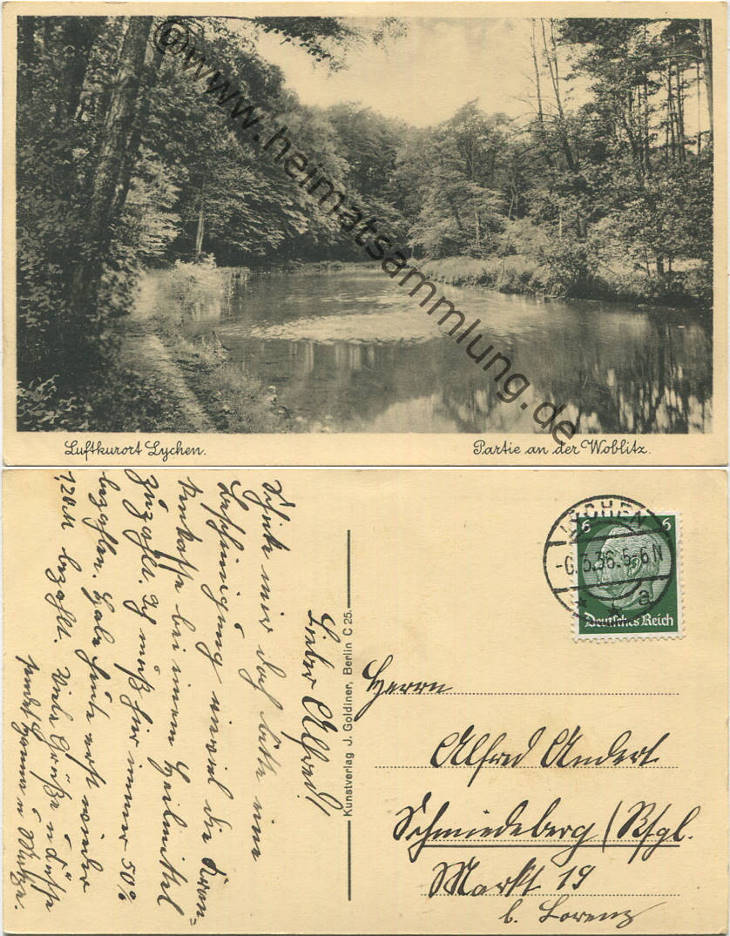 ©www.heimatsammlung.de
Luftkurort Lychen.
Partie an der Woblitz.
Lieber Alfred!
Schicke mir doch bitte eine
Bescheinigung wieviel die Kran-
kenkasse bei einem Heilmittel
zuzahlt. Ich muß hier immer 50%
bezahlen. Habe heute erst wieder
1,20 M bezahlt. Viele Grüße u. Küsse
sendet
Kunstverlag J. Goldiner, Berlin C 25.
LYCHEN
-6.3.36.5-6N
a
6 6
Deutsches Reich
Herrn
Alfred Andert
Schmiedeberg/Rsgb.
Markt 19
b. Lorenz